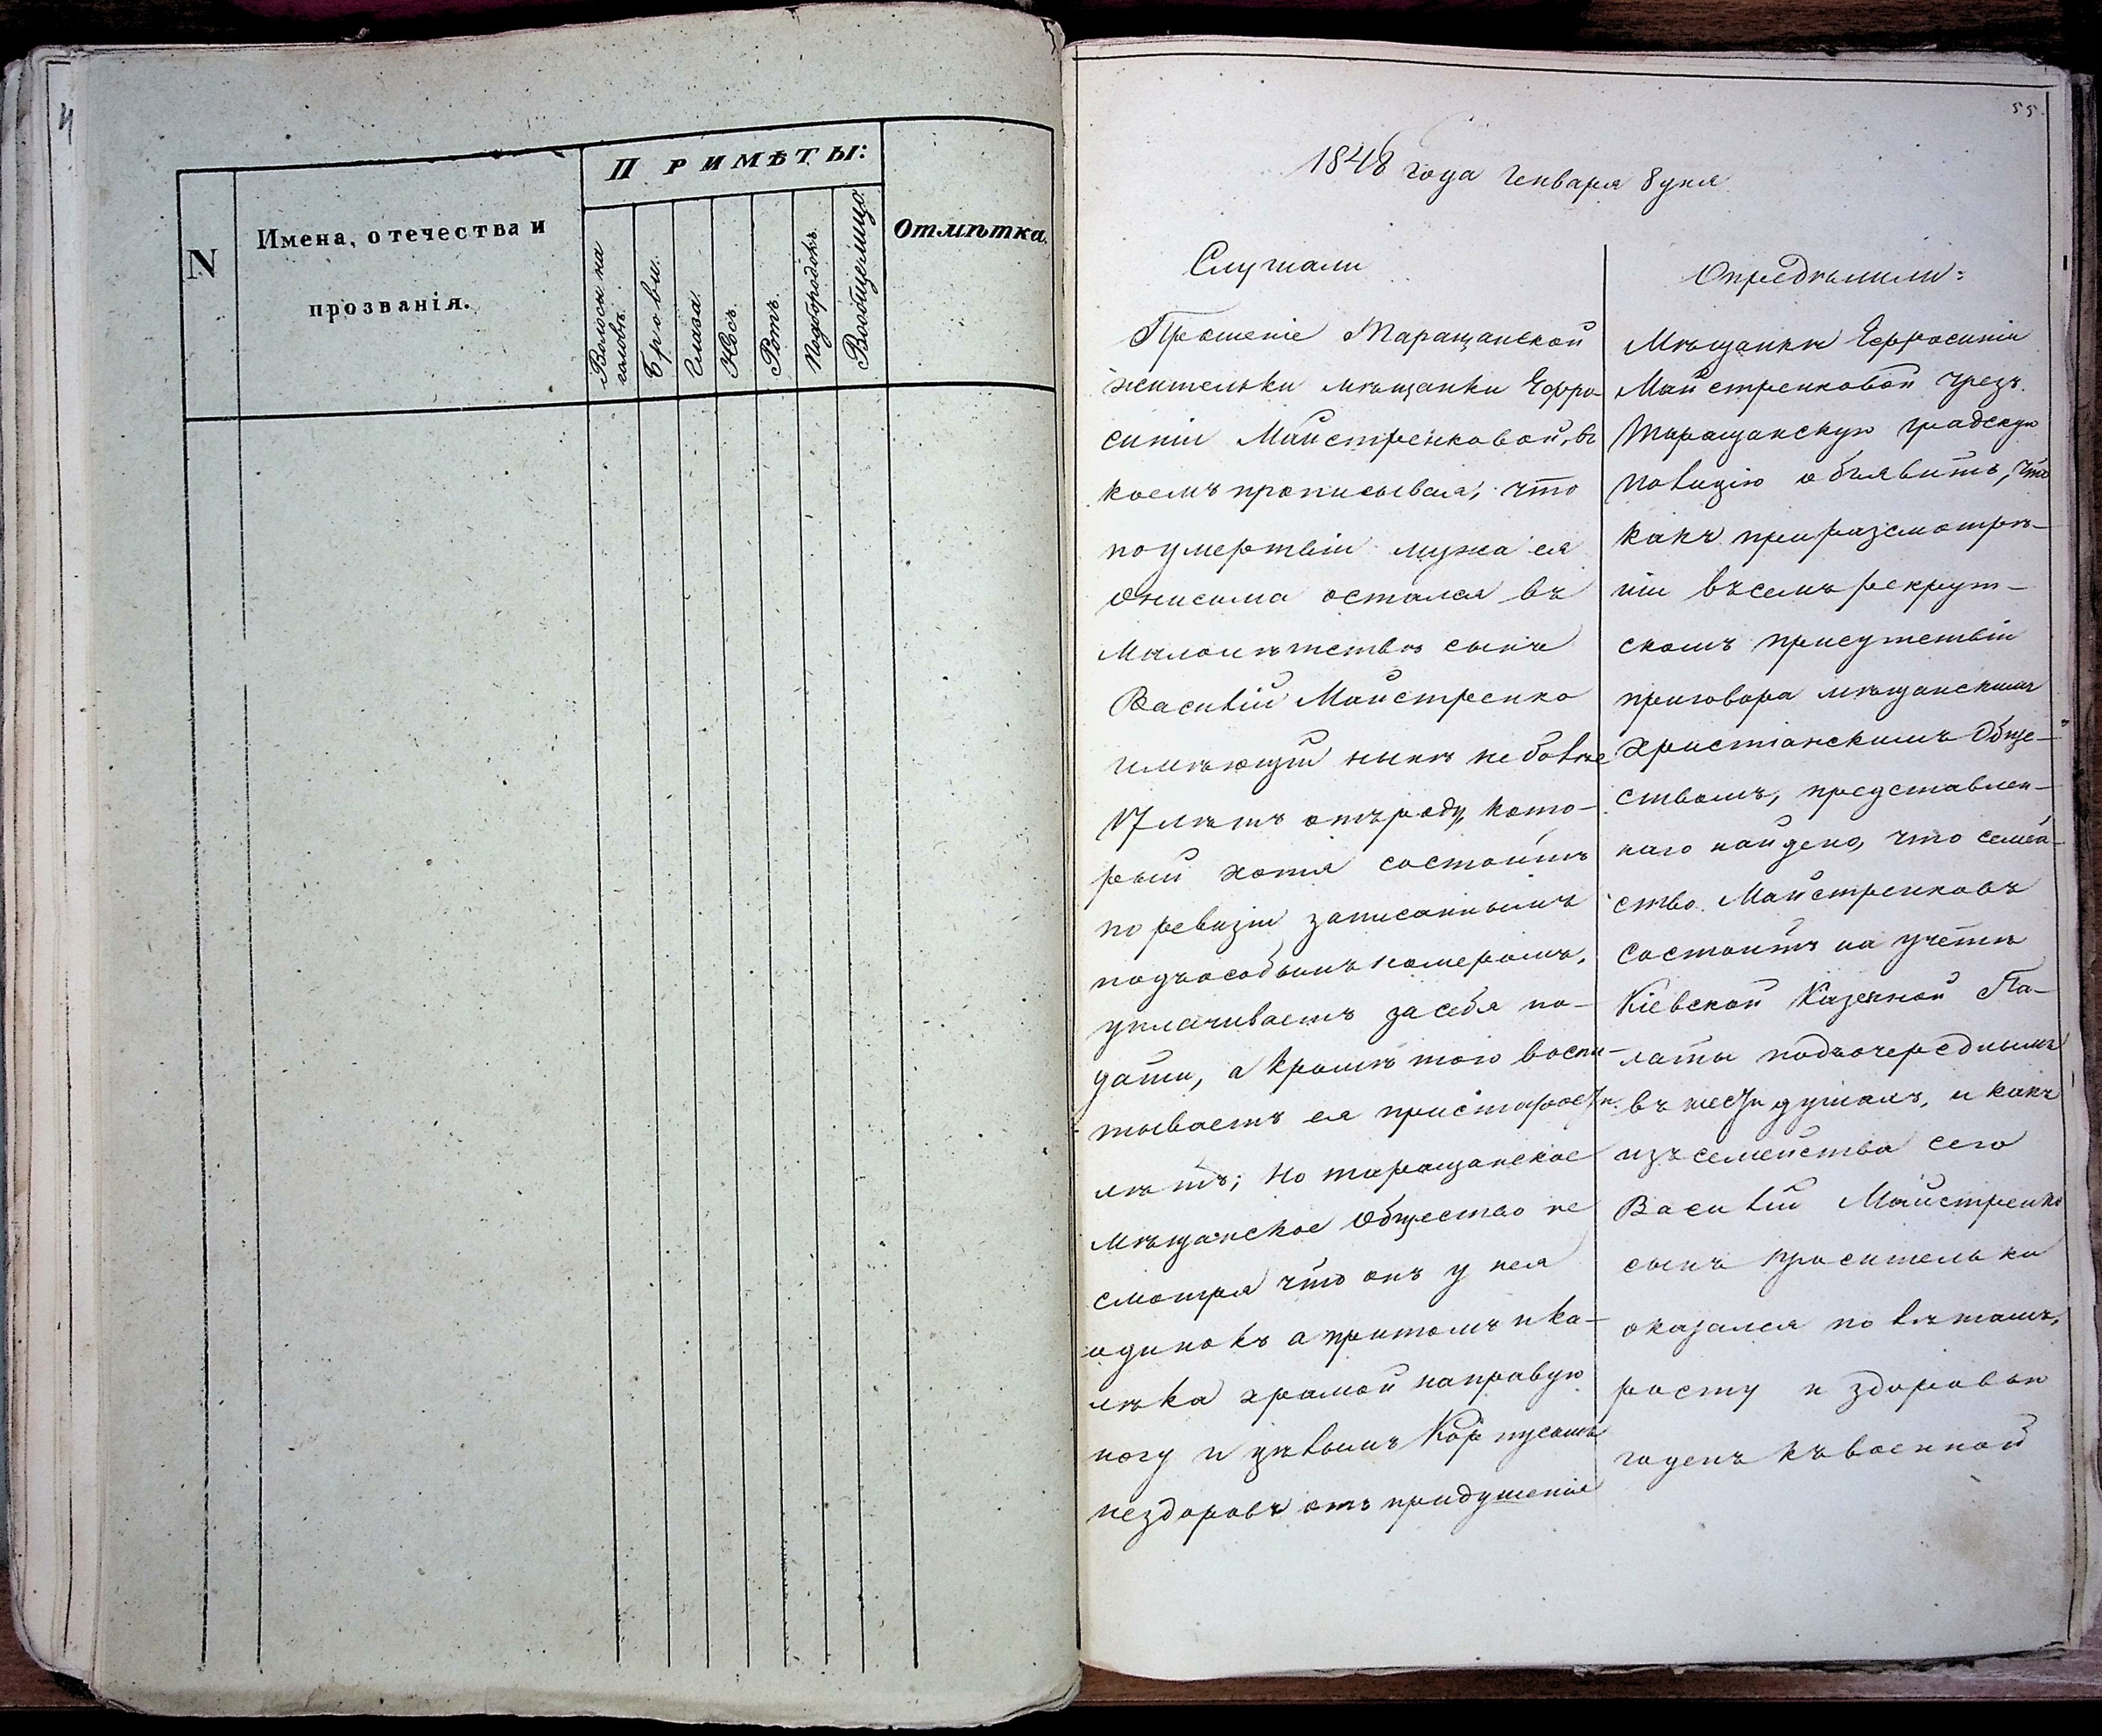 П Р И М Ѣ Т Ы:
N
Имена, отечества и
прозванія.
Волосы на
головѣ.
Брови.
Глаза
Носъ.
Ротъ.
Подбородокъ.
Вообще лицо
Отмѣтка.
55.
1848 года Генваря 8 дня
Слушали
Прошеніе Таращанской
жительки мѣщанки Ефро
синіи Майстренковой, въ
коемъ прописывая, что
по умертвіи мужа ея
Онисима остался въ
малолѣтствѣ сынъ
Василій Майстренко
имѣющій нынѣ не болѣе
17 лѣтъ отъ роду, кото-
рый хотя состоитъ
по ревизіи записаннымъ
подъ особымъ номеромъ,
уплачиваетъ за себя по-
дати, а кромѣ того воспи-
тываетъ ея при старости
лѣтъ; но таращанское
мѣщанское Общество не
смотря что онъ у нея
одинокъ а притомъ и ка-
лѣка хромой на правую
ногу и цѣлымъ Корпусомъ
нездоровъ отъ придушенія
Опредѣлили:
Мѣщанкѣ Ефросиніи
Майстренковой чрезъ
Таращанскую градскую
полицію объявить, что
какъ при разсмотрѣ-
ніи въ семъ рекрут-
скомъ присутствіи
приговора мѣщанскимъ
христіанскимъ Обще-
ствомъ, представлен-
наго найдено, что семей-
ство Майстренковъ
состоитъ на учетѣ
Кіевской Казенной Па-
латы подъ очереднымъ
въ шести душахъ, и какъ
изъ семейства сего
Василій Майстренко
сынъ просительки
оказался по лѣтамъ,
росту и здоровью
годенъ къ военной